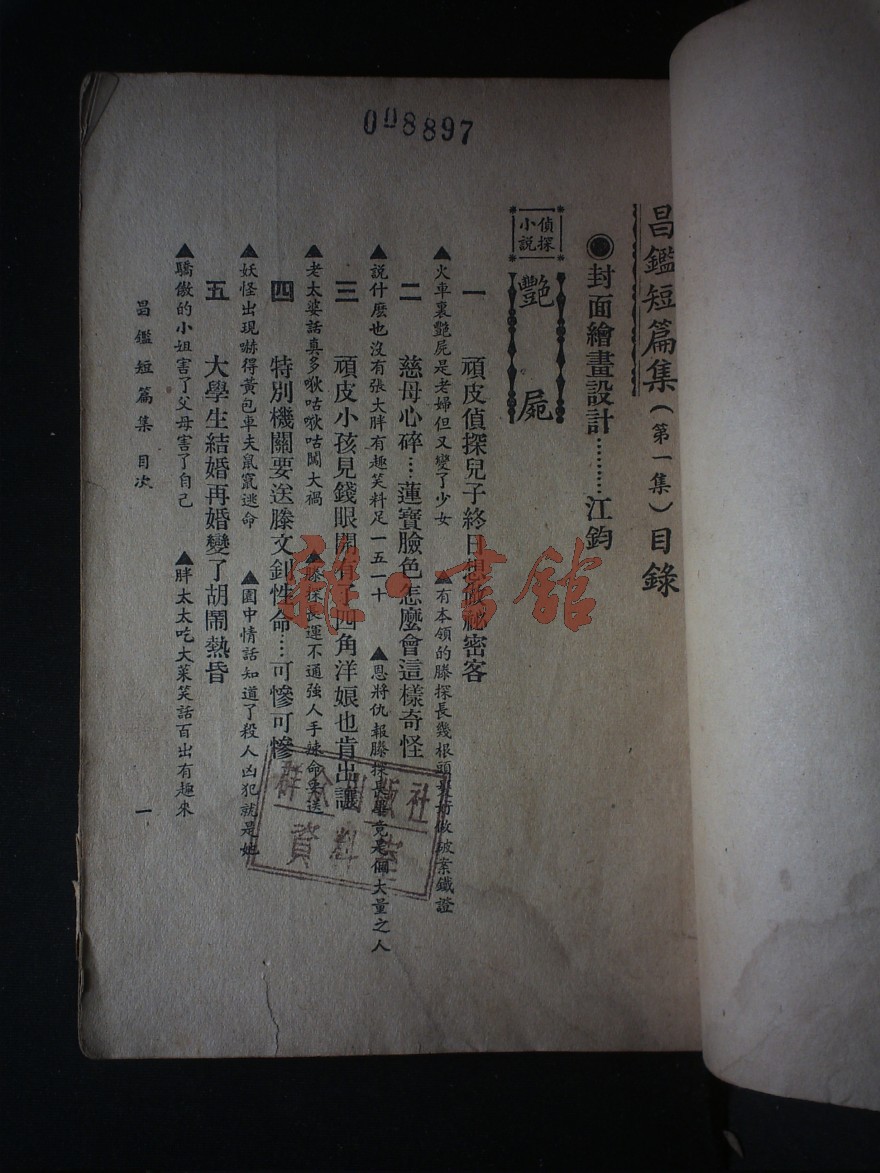 008897
昌鑑短篇集(第一集)目錄
●封面繪畫設計………江鈞
偵探小說
豔屍
一 頑皮偵探兒子終日想做祕密客
▲火車裏豔屍是老婦但又變了少女 ▲有本領的滕探長幾根頭髮做破案鐵證
二 慈母心碎…蓮寶臉色怎麼會這樣奇怪
▲說什麽也沒有張大胖有趣笑料足一五一十 ▲恩將仇報滕探長畢竟是個大量之人
三 頑皮小孩見錢眼開有了四角洋娘也肯出讓
▲老太婆話真多啾咕啾咕闖大禍 ▲滕探長運不通強人手辣命要送
四 特別機關要送滕文釗性命…可慘可慘
▲妖怪出現嚇得黃包車夫鼠竄逃命 ▲園中情話知道了殺人凶犯就是她
五 大學生結婚再婚變了胡鬧熱昏
▲驕傲的小姐害了父母害了自己 ▲胖太太吃大菜笑話百出有趣來
昌鑑短篇集 目次
一
雜·書館
群众出版社
資料室